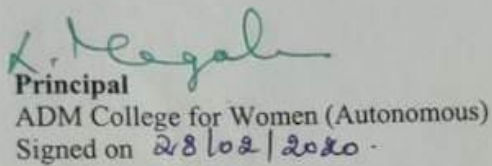 K. Meegal
Principal
ADM College for Women (Autonomous)
Signed on 28/02/2020.